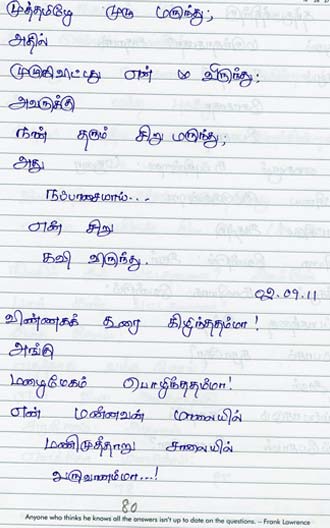 முத்தமிழே முழு மருந்து;
அதில்
முழுகிவிட்டது என் விருந்து;
அவருக்கு
நான் தரும் சிறு மருந்து;
அது
என் சிறு
கவி விருந்து.
02.09.11
விண்ணகக் கூரை கிழிந்ததம்மா!
அங்கு
மழைமேகம் பொழிந்ததம்மா!
என் மன்னவன் மாலையில்
மணிமுத்தாறு சாலையில்
வருவானம்மா...!
80
Anyone who thinks he knows all the answers isn't up to date on the questions. – Frank Lawrence